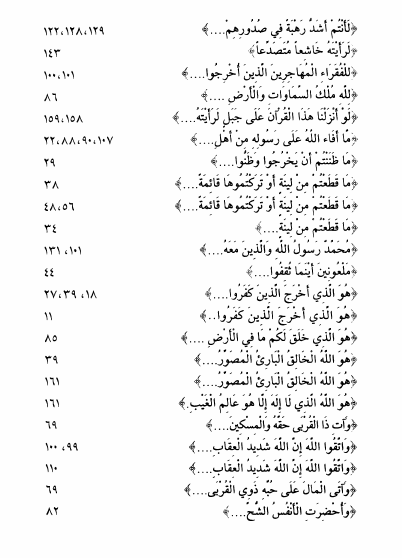 ﴿لَأَنْتُمْ أَشَدُّ رَهْبَةً فِي صُدُورِهِمْ....﴾ ١٢٢،١٢٨،١٢٩
﴿لَرَأَيْتَهُ خَاشِعاً مُتَصَدِّعاً﴾ ١٤٣
﴿لِلْفُقَرَاءِ الْمُهَاجِرِينَ الَّذِينَ أُخْرِجُوا....﴾ ١٠٠،١٠١
﴿لِلَّهِ مُلْكُ السَّمَاوَاتِ وَالْأَرْضِ ....﴾ ٨٦
﴿لَوْ أَنْزَلْنَا هَذَا الْقُرْآنَ عَلَى جَبَلٍ لَرَأَيْتَهُ....﴾ ١٥٩،١٥٨
﴿مَا أَفَاءَ اللَّهُ عَلَى رَسُولِهِ مِنْ أَهْلِ....﴾ ٢٢،٨٨،٩٠،١٠٧
﴿مَا ظَنَنْتُمْ أَنْ يَخْرُجُوا وَظَنُّوا....﴾ ٢٩
﴿مَا قَطَعْتُمْ مِنْ لِينَةٍ أَوْ تَرَكْتُمُوهَا قَائِمَةً....﴾ ٣٨
﴿مَا قَطَعْتُمْ مِنْ لِينَةٍ أَوْ تَرَكْتُمُوهَا قَائِمَةً....﴾ ٤٨،٥٦
﴿مَا قَطَعْتُمْ مِنْ لِينَةٍ....﴾ ٣٤
﴿مُحَمَّدٌ رَسُولُ اللَّهِ وَالَّذِينَ مَعَهُ....﴾ ١٣١ ،١٠١
﴿مَلْعُونِينَ أَيْنَمَا ثُقِفُوا....﴾ ٤٤
﴿هُوَ الَّذِي أَخْرَجَ الَّذِينَ كَفَرُوا....﴾ ٢٧،٣٩ ،١٨
﴿هُوَ الَّذِي أَخْرَجَ الَّذِينَ كَفَرُوا..﴾ ١١
﴿هُوَ الَّذِي خَلَقَ لَكُمْ مَا فِي الْأَرْضِ ....﴾ ٨٥
﴿هُوَ اللَّهُ الْخَالِقُ الْبَارِئُ الْمُصَوِّرُ....﴾ ٣٩
﴿هُوَ اللَّهُ الْخَالِقُ الْبَارِئُ الْمُصَوِّرُ....﴾ ١٦١
﴿هُوَ اللَّهُ الَّذِي لَا إِلَهَ إِلَّا هُوَ عَالِمُ الْغَيْبِ.﴾ ١٦١
﴿وَآتِ ذَا الْقُرْبَى حَقَّهُ وَالْمِسْكِينَ....﴾ ٦٩
﴿وَاتَّقُوا اللَّهَ إِنَّ اللَّهَ شَدِيدُ الْعِقَابِ....﴾ ١٠٠ ،٩٩
﴿وَاتَّقُوا اللَّهَ إِنَّ اللَّهَ شَدِيدُ الْعِقَابِ....﴾ ١١٠
﴿وَآتَى الْمَالَ عَلَى حُبِّهِ ذَوِي الْقُرْبَى....﴾ ٦٩
﴿وَأُحْضِرَتِ الْأَنْفُسُ الشُّحَّ....﴾ ٨٢